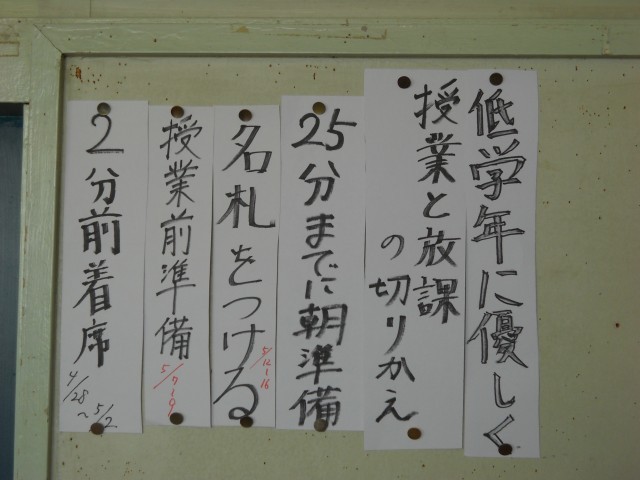 低学年に優しく
授業と放課
の切りかえ
25分までに朝準備
名札をつける
5/12~16
授業前準備
5/7~9
2分前着席
4/28
~5/2